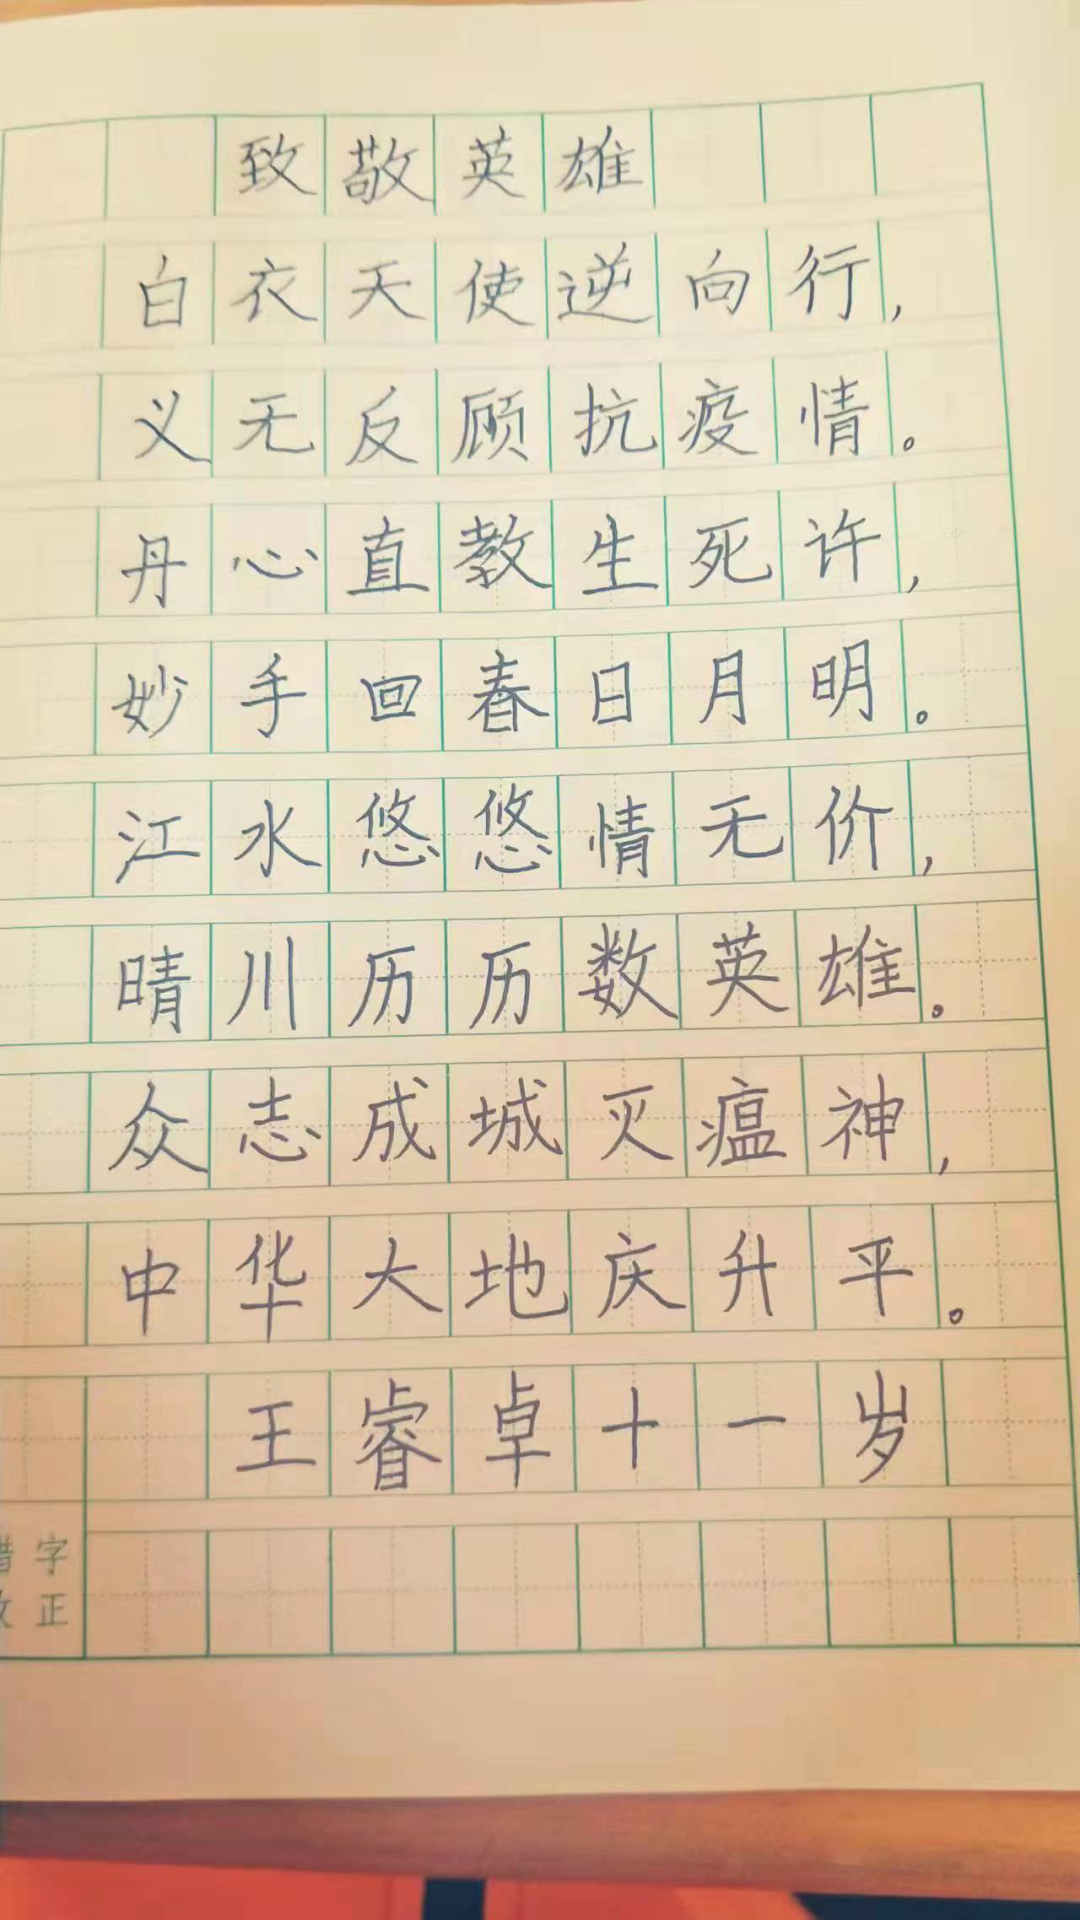 致敬英雄
白衣天使逆向行,
义无反顾抗疫情。
丹心直教生死许,
妙手回春日月明。
江水悠悠情无价,
晴川历历数英雄。
众志成城灭瘟神,
中华大地庆升平。
王睿卓十一岁
错字
改正